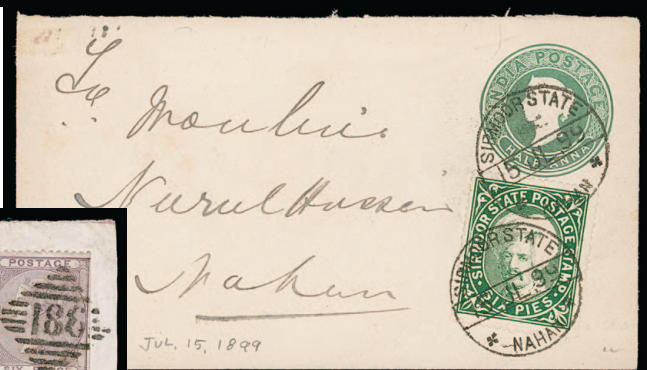 To
Moulvi
Nurul Hussein
Nahan
JUL. 15, 1899
INDIA POSTAGE
HALF ANNA
SIRMOOR STATE
15 JL. 99
NAHAN
SIRMOOR STATE POSTAGE STAMP
SIX PIES
SIRMOOR STATE
JL. 99
NAHAN
POSTAGE
186